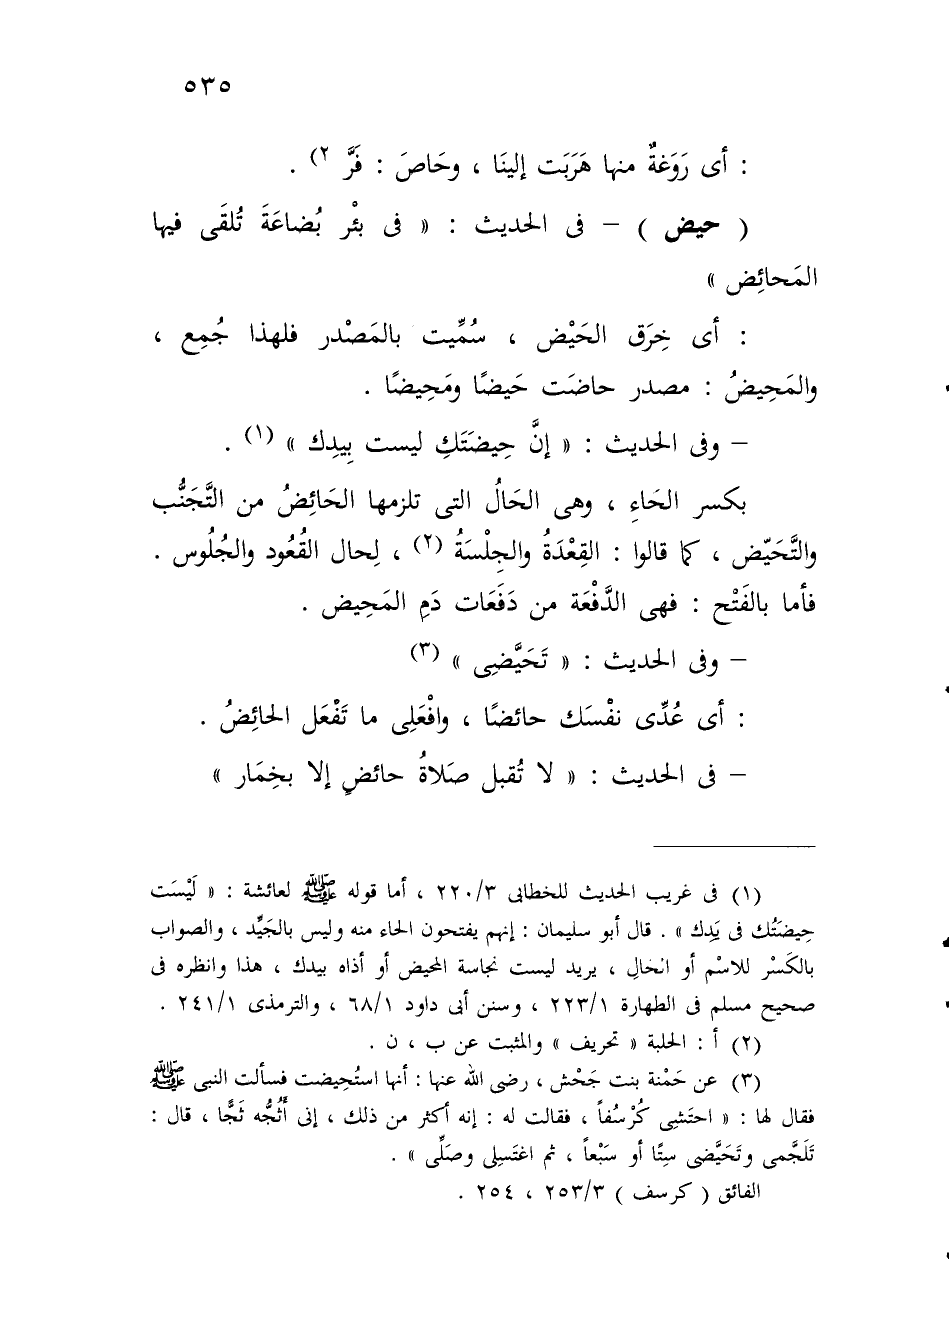 ٥٣٥
: أى رَوَغةٌ منها هَرَبَت إلينَا ، وحَاصَ : فَرَّ ٢) .
( حيض ) – فى الحديث : « فى بئْر بُضاعَةَ تُلقَى فيها
المَحائِض »
: أى خِرَق الحَيْض ، سُمِّيت بالمَصْدر فلهذا جُمِع ،
والمَحِيضُ : مصدر حاضَت حَيضًا ومَحِيضًا .
– وفى الحديث : « إنَّ حِيضَتَكِ ليست بِيدِك » (١) .
بكسر الحَاءِ ، وهى الحَالُ التى تلزمها الحَائِضُ من التَّجَنُّب
والتَّحَيّض ، كما قالوا : القِعْدَةُ والجِلْسَةُ (٢) ، لِحال القُعُود والجُلُوس .
فأما بالفَتْح : فهى الدَّفْعَة من دَفَعَات دَمِ المَحِيض .
– وفى الحديث : « تَحَيَّضِى » (٣)
: أى عُدِّى نفْسَك حائضًا ، وافْعَلِى ما تَفْعَل الحائِضُ .
– فى الحديث : « لا تُقبل صَلاةُ حائضٍ إلا بخِمَار »
(١) فى غريب الحديث للخطابى ٢٢٠/٣ ، أما قوله ﷺ لعائشة : « لَيْسَت
حِيضَتُك فى يَدِك » . قال أبو سليمان : إنهم يفتحون الحاء منه وليس بالجَيِّد ، والصواب
بالكَسْر للاسْم أو الحَالِ ، يريد ليست نجاسة المحيض أو أذاه بيدك ، هذا وانظره فى
صحيح مسلم فى الطهارة ٢٢٣/١ ، وسنن أبى داود ٦٨/١ ، والترمذى ٢٤١/١ .
(٢) أ : الحلبة « تحريف » والمثبت عن ب ، ن .
(٣) عن حَمْنة بنت جَحْش ، رضى الله عنها : أنها استُحِيضت فسألت النبى ﷺ
فقال لها : « احتَشِى كُرْسُفاً ، فقالت له : إنه أكثر من ذلك ، إنى أَثُجُّه ثَجًّا ، قال :
تَلَجَّمى وتَحَيَّضى سِتًا أو سَبْعاً ، ثم اغتَسِلى وصَلِّى » .
الفائق ( كرسف ) ٢٥٣/٣ ، ٢٥٤ .